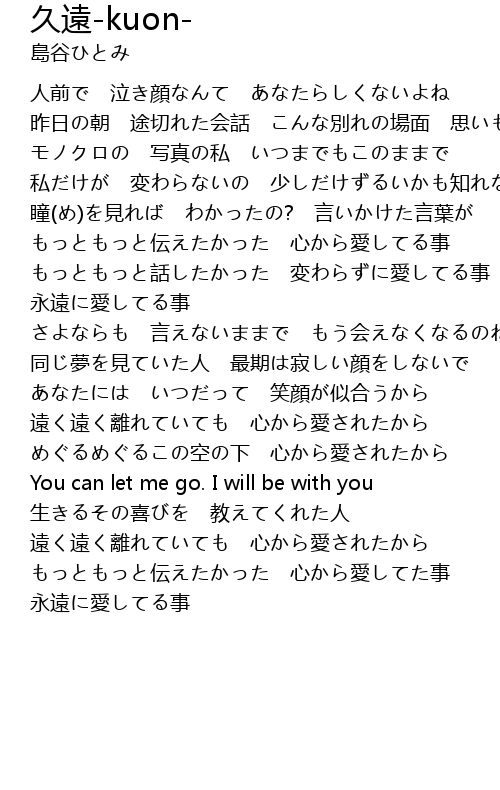 久遠-kuon-
島谷ひとみ
人前で　泣き顔なんて　あなたらしくないよね
昨日の朝　途切れた会話　こんな別れの場面　思いも
モノクロの　写真の私　いつまでもこのままで
私だけが　変わらないの　少しだけずるいかも知れな
瞳(め)を見れば　わかったの?　言いかけた言葉が
もっともっと伝えたかった　心から愛してる事
もっともっと話したかった　変わらずに愛してる事
永遠に愛してる事
さよならも　言えないままで　もう会えなくなるのね
同じ夢を見ていた人　最期は寂しい顔をしないで
あなたには　いつだって　笑顔が似合うから
遠く遠く離れていても　心から愛されたから
めぐるめぐるこの空の下　心から愛されたから
You can let me go. I will be with you
生きるその喜びを　教えてくれた人
遠く遠く離れていても　心から愛されたから
もっともっと伝えたかった　心から愛してた事
永遠に愛してる事